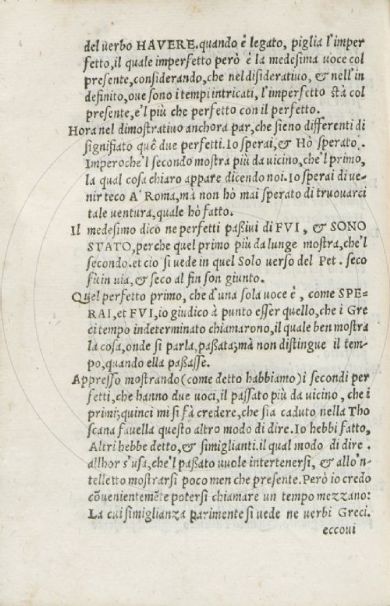 del uerbo HAVERE. quando è legato, piglia l'imper
fetto, il quale imperfetto però è la medesima uoce col
presente, considerando, che nel disideratiuo, & nell'in
definito, oue sono i tempi intricati, l'imperfetto stà col
presente, e'l più che perfetto con il perfetto.
Hora nel dimostratiuo anchora par, che sieno differenti di
significato què due perfetti. Io sperai, & Hò sperato.
Imperoche'l secondo mostra più da uicino, che'l primo,
la qual cosa chiaro appare dicendo noi. Io sperai di ue-
nir teco A' Roma, mà non hò mai sperato di truouarci
tale uentura, quale hò fatto.
Il medesimo dico ne perfetti paßiui di FVI, & SONO
STATO, perche quel primo più da lunge mostra, che'l
secondo. et cio si uede in quel Solo uerso del Pet. seco
fui n uia, & seco al fin son giunto.
Quel perfetto primo, che d'una sola uoce è, come SPE-
RAI, et FVI, io giudico à punto esser quello, che i Gre
ci tempo indeterminato chiamarono, il quale ben mostra
la cosa, onde si parla, paßata; mà non distingue il tem-
po, quando ella paßasse.
Appresso mostrando (come detto habbiamo) i secondi per
fetti, che hanno due uoci, il passato più da uicino, che i
primi; quinci mi si fà credere, che sia caduto nella Tho
scana fauella questo altro modo di dire. Io hebbi fatto,
Altri hebbe detto, & simiglianti. il qual modo di dire
allhor s'usa, che'l paßato uuole intertenersi, & allo'n-
telletto mostrarsi poco men che presente. Però io credo
cõuenientemẽte potersi chiamare un tempo mezzano:
La cui simiglianza parimente si uede ne uerbi Greci.
eccoui